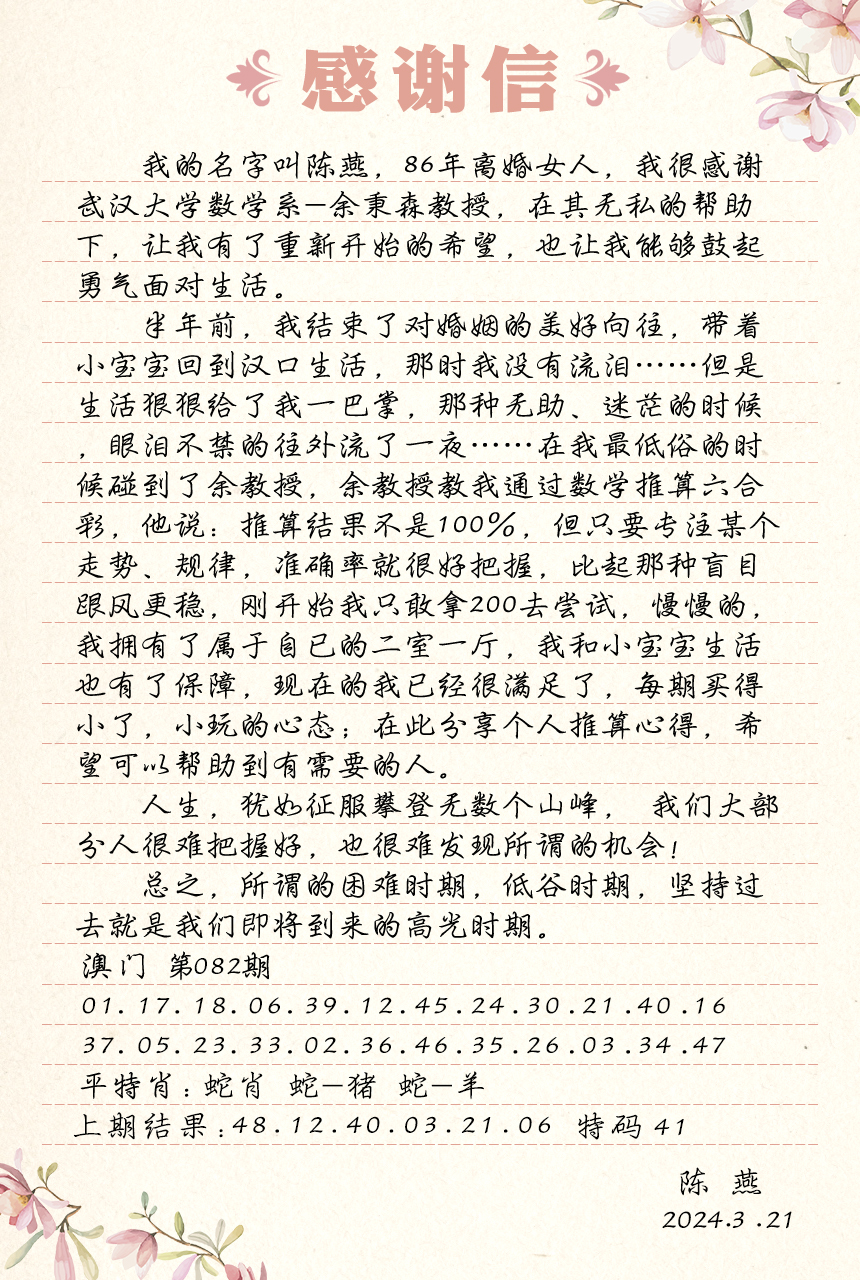 感谢信
我的名字叫陈燕，86年离婚女人，我很感谢
武汉大学数学系—余秉森教授，在其无私的帮助
下，让我有了重新开始的希望，也让我能够鼓起
勇气面对生活。
半年前，我结束了对婚姻的美好向往，带着
小宝宝回到汉口生活，那时我没有流泪……但是
生活狠狠给了我一巴掌，那种无助、迷茫的时候
，眼泪不禁的往外流了一夜……在我最低俗的时
候碰到了余教授，余教授教我通过数学推算六合
彩，他说：推算结果不是100%，但只要专注某个
走势、规律，准确率就很好把握，比起那种盲目
跟风更稳，刚开始我只敢拿200去尝试，慢慢的，
我拥有了属于自已的二室一厅，我和小宝宝生活
也有了保障，现在的我已经很满足了，每期买得
小了，小玩的心态；在此分享个人推算心得，希
望可以帮助到有需要的人。
人生，犹如征服攀登无数个山峰， 我们大部
分人很难把握好，也很难发现所谓的机会！
总之，所谓的困难时期，低谷时期，坚持过
去就是我们即将到来的高光时期。
澳门 第082期
01.17.18.06.39.12.45.24.30.21.40.16
37.05.23.33.02.36.46.35.26.03.34.47
平特肖：蛇肖 蛇—猪 蛇—羊
上期结果：48.12.40.03.21.06 特码 41
陈 燕
2024.3.21